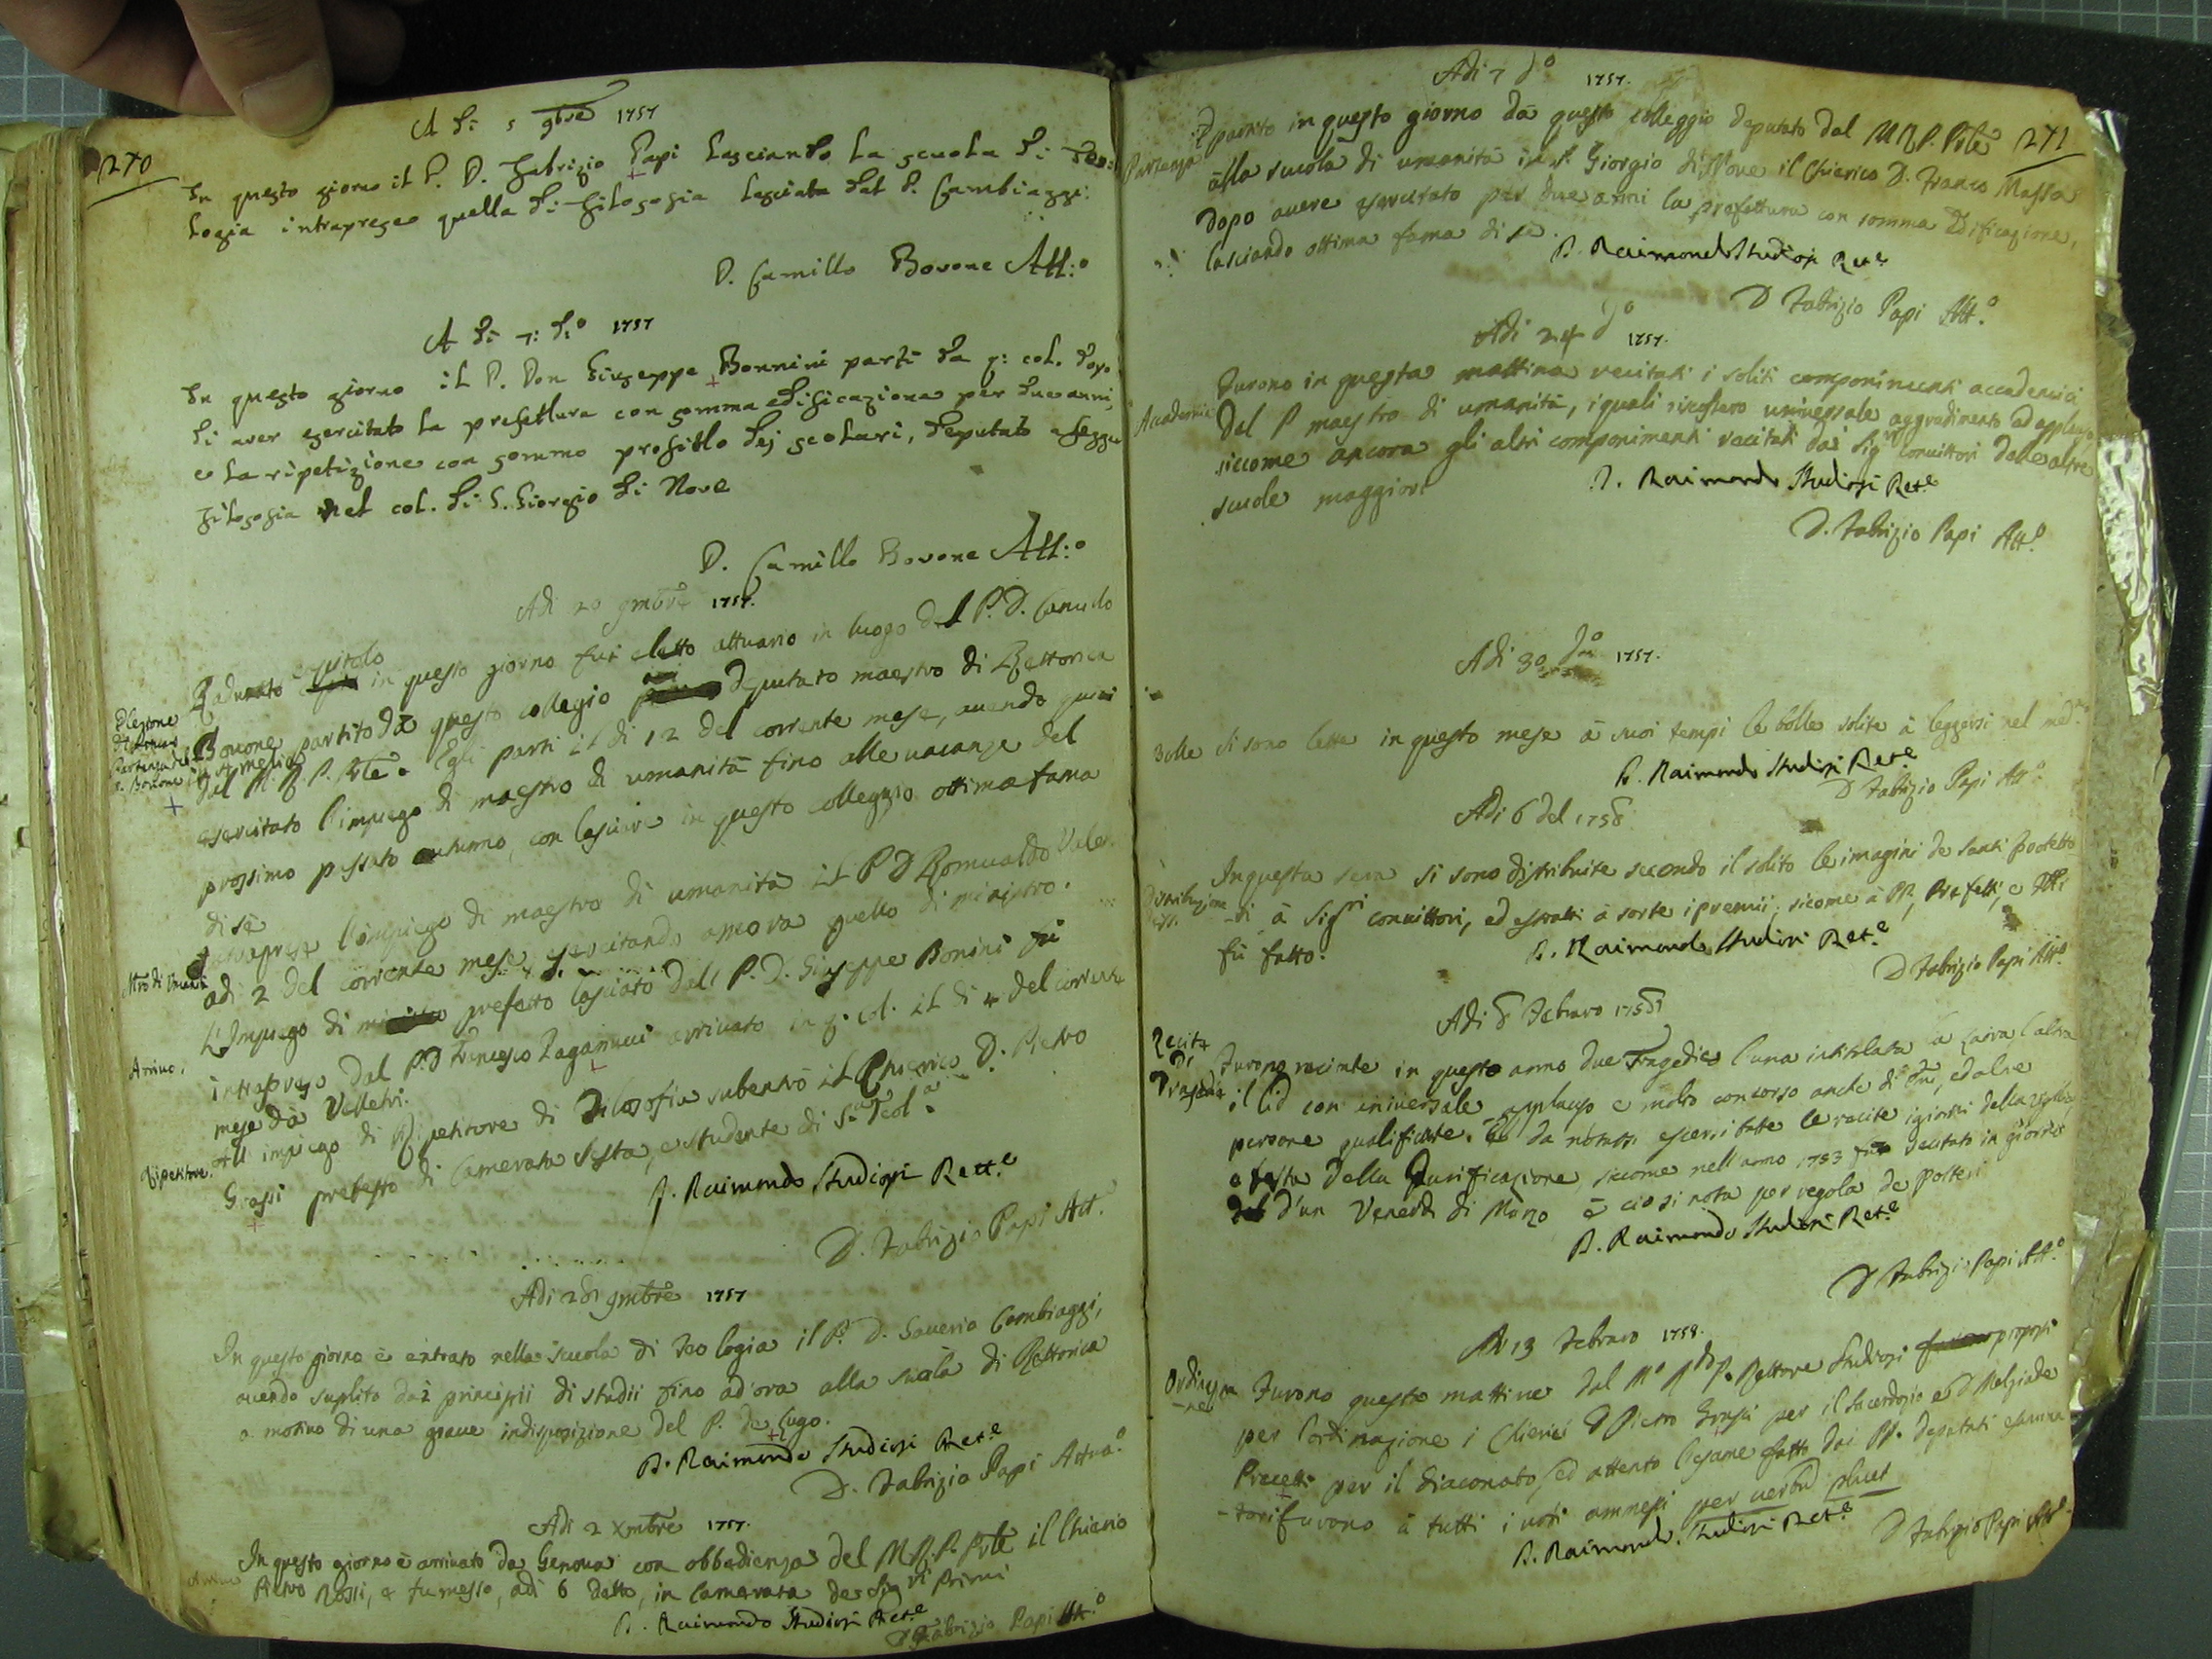 270
A dì 5 9bre 1757
In questo giorno il P. D. Fabrizio Papi lasciando la scuola di Teo:
logia intraprese quella di Filosofia lasciata dal P. Cambiaggi:
D. Camillo Bovone Att:o
A dì 7: do 1757
In questo giorno il P. Don Giuseppe Bonnini partì da q: col. dopo
di aver esercitato la prefettura con somma edificazione per due anni,
e la ripetizione con sommo profitto dej scolari, deputato a legger
filosofia nel col. di S. Giorgio di Nove
D. Camillo Bovone Att:o
Adi 20 9mbre 1757.
Radunato capitolo in questo giorno fui eletto attuario in luogo del P. D. Camillo
Elezione
Partenza del
P. Bovone
Bovone partito da questo collegio deputato maestro di Rettorica
dal M. R. P. Prle. Egli partì il di 12 del corrente mese, avendo quivi
esercitato l'impiego di maestro di umanità fino alle vacanze del
prossimo passato autunno, con lasciare in questo colleggio ottima fama
di se
Mro di Umanità
Intraprese l'impiego di maestro di umanità il P D Romualdo
adi 2 del corrente mese, esercitando ancora quello di ministro.
L'Impiego di prefetto lasciato dall P. D. Giuseppe Bonini fù
Arrivo.
intrapreso dal P. D Francesco Paganucci arrivato in q. col. il di 4 del corrente
mese da Velletri.
Ripetitore.
All impiego di Ripetitore di Filosofia subentrò il Chierico D. Pietro
Grassi prefetto di Camerata Sesta, e studente di Sa Teola.
D. Raimondo Studiosi Rett.e
D. Fabrizio Papi Att.o
Adi 28 9mbre 1757
In questo giorno è entrato nella scuola di Teologia il P. D. Saverio Cambiaggi,
avendo suplito dai principii di studii fino ad ora alla scuola di Rettorica
a motivo di una grave indisposizione del P. de Lugo.
D. Raimondo Studiosi Ret.e
D. Fabrizio Papi Attua.o
Adi 2 Xmbre 1757.
Arrivo
In questo giorno è arrivato da Genova con obbedienza del M. R. P. Prle il Chierico
Pietro Rossi, e fu messo, adi 6 detto, in Camerata de Sigri Primi
D. Raimondo Studiosi Ret.e
D Fabrizio Papi Att.o
271
Adi 7 do 1757.
Partenza
È partito in questo giorno da questo colleggio deputato dal M. R. P. Prle
alla scuola di umanità in S. Giorgio di Nove il Chierico D. Franco Massa
dopo avere esercitato per due anni la prefettura con somma edificazione,
lasciando ottima fama di se.
D. Raimondo Studiosi Ret.e
D Fabrizio Papi Att.o
Adi 24 do 1757.
Accademia
Furono in questa mattina recitati i soliti componimenti accademici
Del P maestro di umanità, i quali riscossero universale aggradimento ed applauso
siccome ancora gli altri componimenti recitati dai Sigri Convittori delle altre
scuole maggiori
D. Raimondo Studiosi Ret.e
D. Fabrizio Papi Att.o
Adi 30 do 1757.
Bolle
Si sono lette in questo mese a suoi tempi le bolle solite à leggersi nel med.mo
D. Raimondo Studiosi Ret.e
D Fabrizio Papi Att.o
Adi 6 del 1758
Distribuzione
In questa sera si sono distribuite secondo il solito le imagini de santi protetto
-ri à Sigri convittori, ed estratti à sorte i premii, sicome à PP, Prefetti, e
fù fatto.
D. Raimondo Studiosi Ret.e
D Fabrizio Papi Att.o
Adi 8 Febraro 1758
Recita
Di
Tragedie
Furono recitate in questo anno due Tragedie l'una intitolata la l'altra
il Cid con universale applauso e molto concorso anche di ed altre
persone qualificate. da notarsi essersi fatte le recite i giorni della
e festa della Purificazione, siccome nell'anno 1753 recitati in giorno
d'un Venerdì di Marzo è ciò si nota per regola de posteri
D. Raimondo Studiosi Ret.e
D Fabrizio Papi Att.o
Adi 13 Febraro 1758.
Ordinazio
-ne
Furono questa mattina dal M.o R.do P. Rettore Studiosi proposti
per l'ordinazione i Chierici D Pietro Grassi per il sacerdozio e D Melziade
Precetti per il diaconato, ed attento l'esame fatto dai PP. deputati esamina
-tori furono à tutti i voti ammessi per verbũ placet
D. Raimondo Studiosi Ret.e
D Fabrizio Papi Att.o